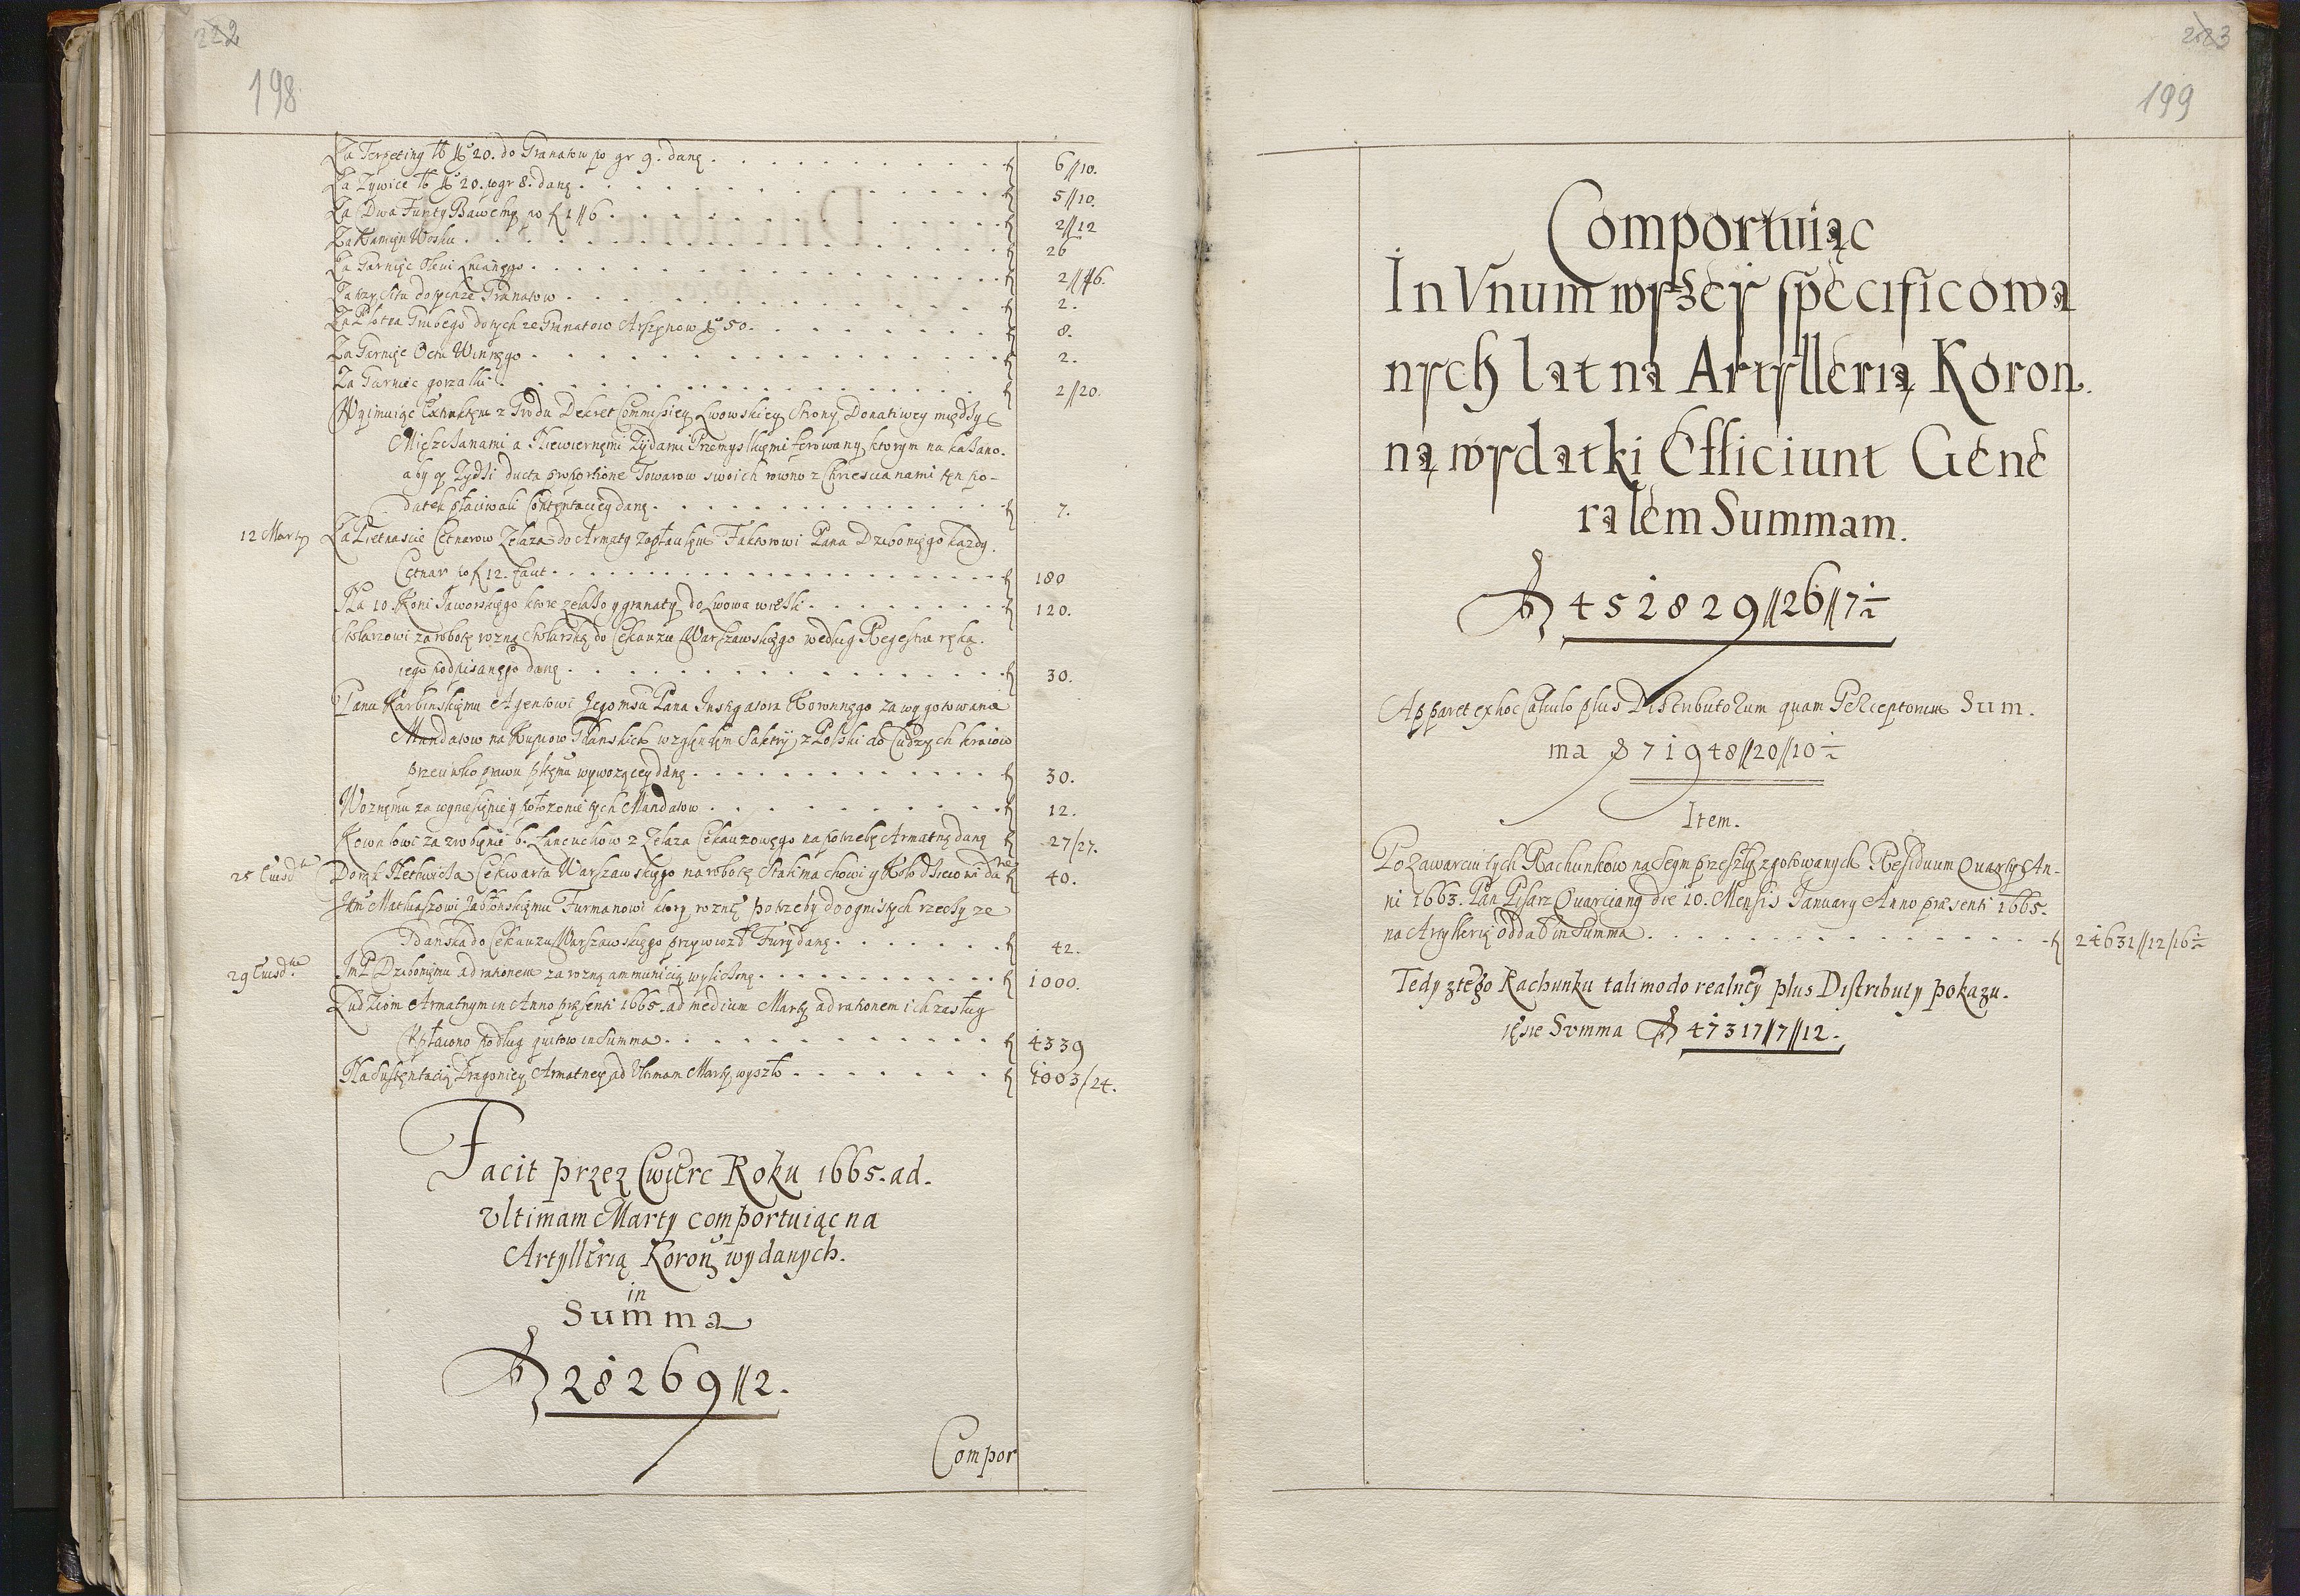 222
198
Za Terpetinę tt No 20. do Granatow po gr 9. danę f 6//10.
Za Zywice tt No 20. po gr 8. danę f 5//10.
Za Dwa Funty Bawełny po f 1//6 f 2//12
Za Kamięn Wosku f 26
Za Garnięc Oleiu Lnianęgo f 2//
Za trzy Sita do tychze Granatow f 2.
Za Płotna Grubego do tych ze Granatow Arszynow No 50. f 8.
Za Garnięc Octu Winnęgo f 2.
Za Garniec gorzałki f 2//20.
Wyimuiąc Extraktęm z Grodu Dekret Commissiey Lwowskiey Strony Donatiwey między
Mieszczanami a Niewiernęmi Zydami Przemyskięmi ferowany, ktorym nakazano.
aby y Zydzi ducta proportione Towarow swoich rowno z Chrzescianami tęn po-
datek płaciwali Contętaciey danę f 7.
12 Marty Za Pietnascie Cetnarow Zelaza do Armaty zapłaciłęm Faktorowi Pana Dzibonięgo kazdy.
Cętnar po f 12. facit f 180
Na 10. Koni Jaworskięgo ktore zelazo y granaty do Lwowa wiezli f 120.
Stolarzowi za robotę rozną stolarską do Cekauzu Warszawskięgo według Regestru ręką.
iego podpisanęgo danę f 30.
Panu Karbinskięmu Agentowi Jegomsci Pana Instigatora Koronnęgo za wygotowanie
Mandatow na Kupcow Gdanskich względęm Saletry z Polski do Cudzych kraiow
przeciwko prawu pltęmu wywozącey danę f 30.
Woznęmu za wyniesięnie y połozenie tych Mandatow f 12.
Kowalowi za zrobięnie 6. Łancuchow z Zelaza Cekauzowęgo na potrzebę Armatnę danę f 27/27.
25 Eiusdem Do rąk Cekwarta Warszawskięgo na robotę Stalmachowi y Kołodzieiowi danę f 40.
Itm Mathiaszowi Jabłonskięmu Furmanowi ktory roznę potrzeby do ognistych rzeczy ze
Gdanska do Cekauzu Warszawskięgo przywiozł Fury danę f 42.
29 Eiusdem ImP Dzibonięmu ad rationem za rozną ammunicią wyliczonę f 1000.
Ludziom Armatnym in Anno pręsenti 1665. ad medium Marty ad rationem ich zasług
Zpłacono podług quitow in Summa f 4339
Na Sustęntacią Dragoniey Armatney ad Vltimam Marty wyszło f 1003/24.
Facit przez Cwierc Roku 1665. ad.
Vltimam Marty comportuiąc na
Artyllerią Koronną wydanych.
in
Summa
f 28269//2.
Compor
223
199
Comportuiąc
In Vnum wyszey specificowa
nych lat na Artyllerią Koron.
ną wydatki Efficiunt Gene
ralem Summam.
f 452829//26//7½
Apparet ex hoc Calculo plus Distributorum quam Perceptorum Sum.
ma f 71948//20//10½
Item.
Po zawarciu tych Rachunkow na Seym przeszły zgotowanych Residuum Quarty An-
ni 1663. Pan Pisarz Quarciany die 10. Mensis January Anno praesenti 1665.
na Artyllerią oddał in Summa f 24631//12/16½
Tedy z tego Rachunku tali modo realney plus Distributy pokazu.
ięsie Summa f 47317//7//12.